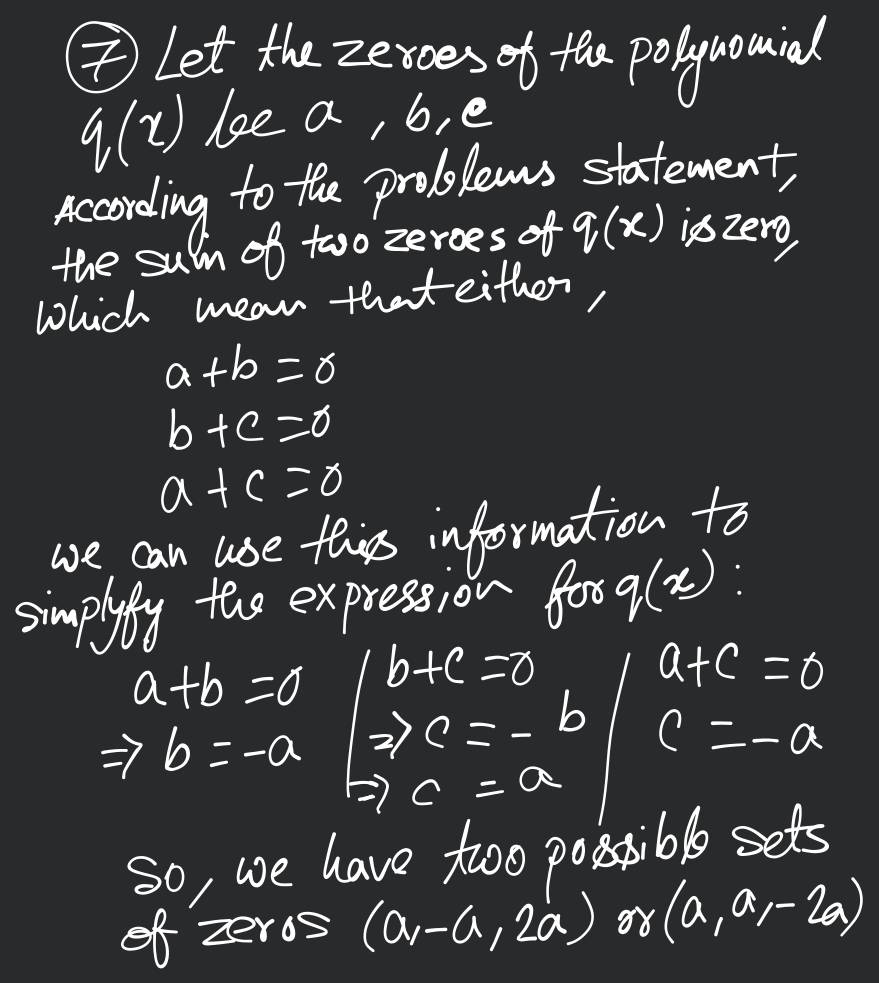 ⑦ Let the zeroes of the polynomial
q(x) be a, b, c
According to the problems statement,
the sum of two zeroes of q(x) is zero,
which mean that either,
a+b=0
b+c=0
a+c=0
we can use this information to
simplyfy the expression for q(x):
a+b=0 | b+c=0 | a+c=0
⇒ b=-a | ⇒ c=-b | c=-a
⇒ c=a
So, we have two possible sets
of zeros (a,-a, 2a) or (a, a,-2a)